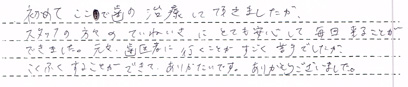 初めて ここで歯の 治療して頂きましたが、
スタッフの方々の ていねいさに とても安心して 毎回 来ることが
できました。元々、歯医者に 行くことが すごく 苦手でしたが、
こくふくすることができて、ありがたいです。ありがとうございました。